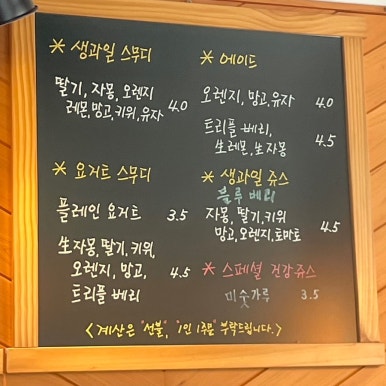 * 생과일 스무디
딸기, 자몽, 오렌지
레몬, 망고, 키위, 유자 4.0
* 요거트 스무디
플레인 요거트 3.5
生자몽, 딸기, 키위,
오렌지, 망고, 4.5
트리플 베리
* 에이트
오렌지, 망고, 유자 4.0
트리플 베리, 4.5
生레몬, 生자몽
* 생과일 쥬스
블루베리
자몽, 딸기, 키위
망고, 오렌지, 토마토 4.5
* 스페셜 건강쥬스
미숫가루 3.5
<계산은 "선불", "1인 1주문" 부탁드립니다.>